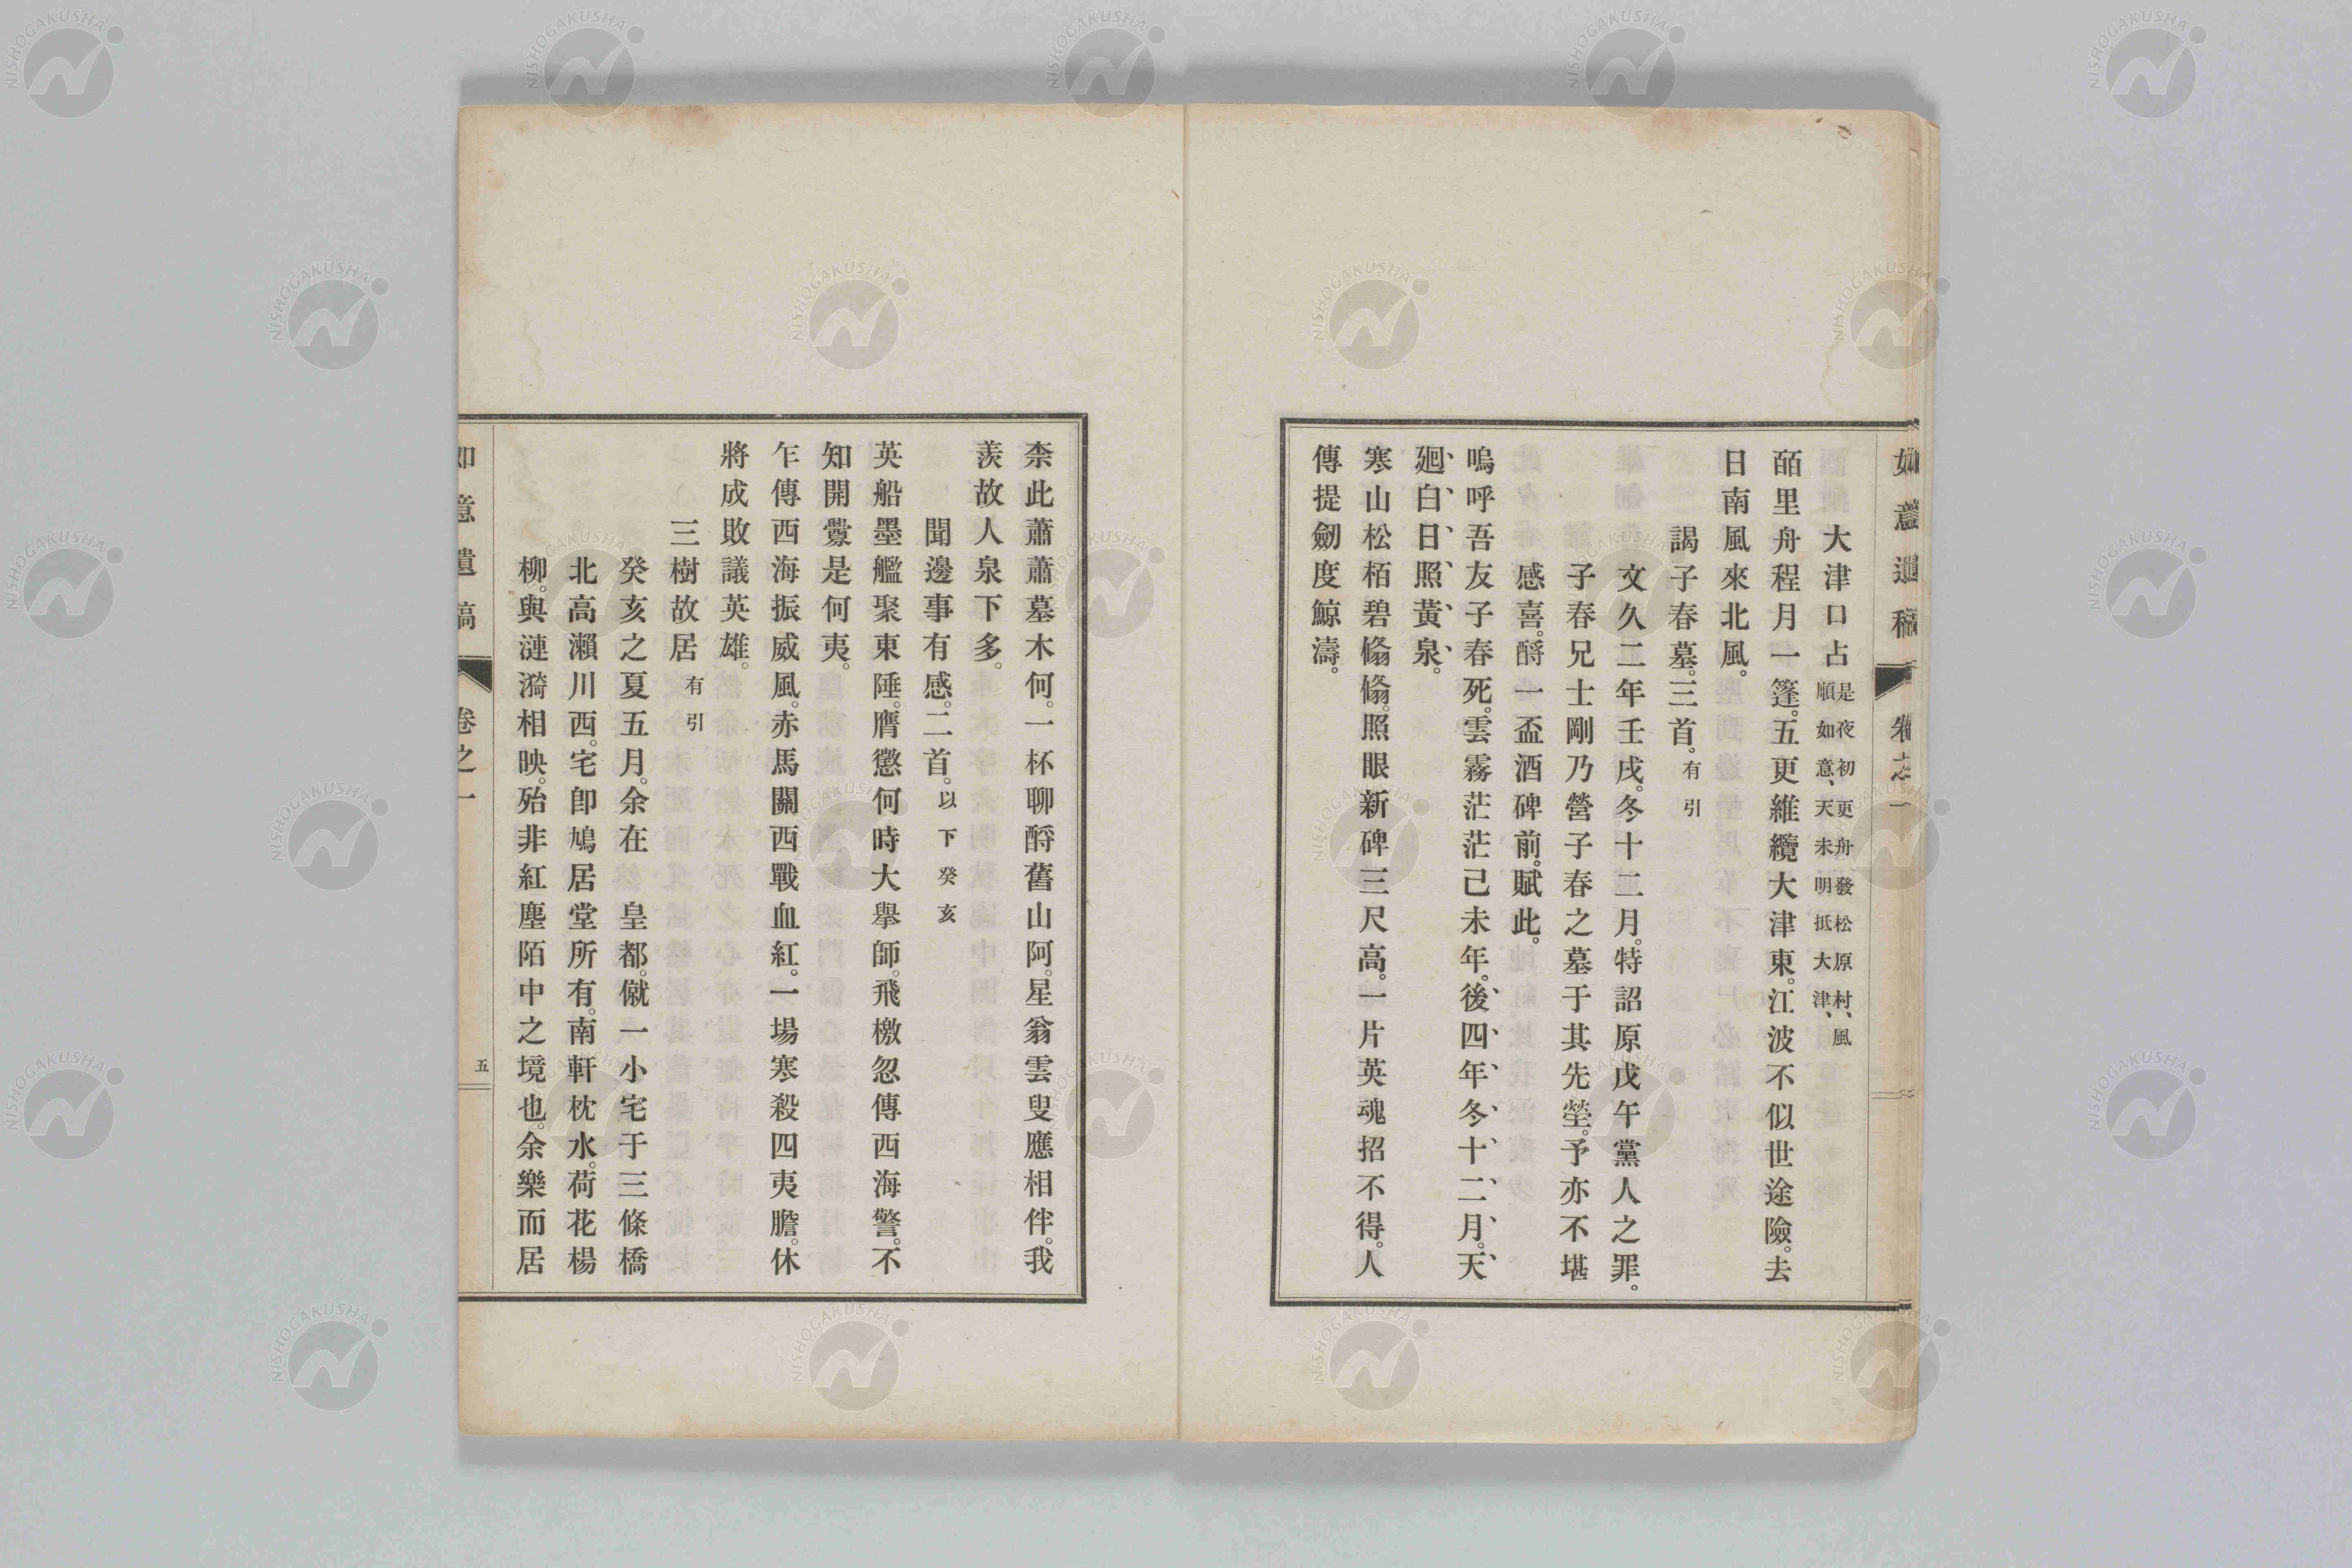 如意遺稿　卷之一
大津口占 是夜初更舟發松原村、風順如意、天未明抵大津、
皕里舟程月一篷。五更維纜大津東。江波不似世途險。去
日南風來北風。
謁子春墓。三首。有引
文久二年壬戌。冬十二月。特詔原戊午黨人之罪。
子春兄士剛乃營子春之墓于其先塋。予亦不堪
感喜。酹一盃酒碑前。賦此。
嗚呼吾友子春死。雲霧茫茫己未年。後四年冬十二月。天
廻白日照黃泉。
寒山松栢碧翛翛。照眼新碑三尺高。一片英魂招不得。人
傳提劒度鯨濤。
柰此蕭蕭墓木何。一杯聊酹舊山阿。星翁雲叟應相伴。我
羨故人泉下多。
聞邊事有感。二首。以下癸亥
英船墨艦聚東陲。膺懲何時大擧師。飛檄忽傳西海警。不
知開釁是何夷。
乍傳西海振威風。赤馬關西戰血紅。一場寒殺四夷膽。休
將成敗議英雄。
三樹故居 有引
癸亥之夏五月。余在　皇都。僦一小宅于三條橋
北高瀨川西。宅卽鳩居堂所有。南軒枕水。荷花楊
柳。與漣漪相映。殆非紅塵陌中之境也。余樂而居
如意遺稿　卷之一　五